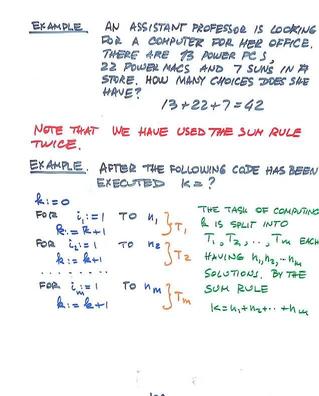 EXAMPLE. AN ASSISTANT PROFESSOR IS LOOKING
FOR A COMPUTER FOR HER OFFICE.
THERE ARE 13 POWER PC'S,
22 POWER MACS AND 7 SUNS IN A
STORE. HOW MANY CHOICES DOES SHE
HAVE?
13+22+7=42
NOTE THAT WE HAVE USED THE SUM RULE
TWICE.
EXAMPLE. AFTER THE FOLLOWING CODE HAS BEEN
EXECUTED K=?
k:=0
FOR i₁:=1 TO n₁
k:=k+1
} T₁
FOR i₂:=1 TO n₂
k:=k+1
} T₂
........
FOR iₘ:=1 TO nₘ
k:=k+1
} Tₘ
THE TASK OF COMPUTING
k IS SPLIT INTO
T₁, T₂, .., Tₘ EACH
HAVING n₁, n₂, .. nₘ
SOLUTIONS. BY THE
SUM RULE
K=n₁+n₂+..+nₘ